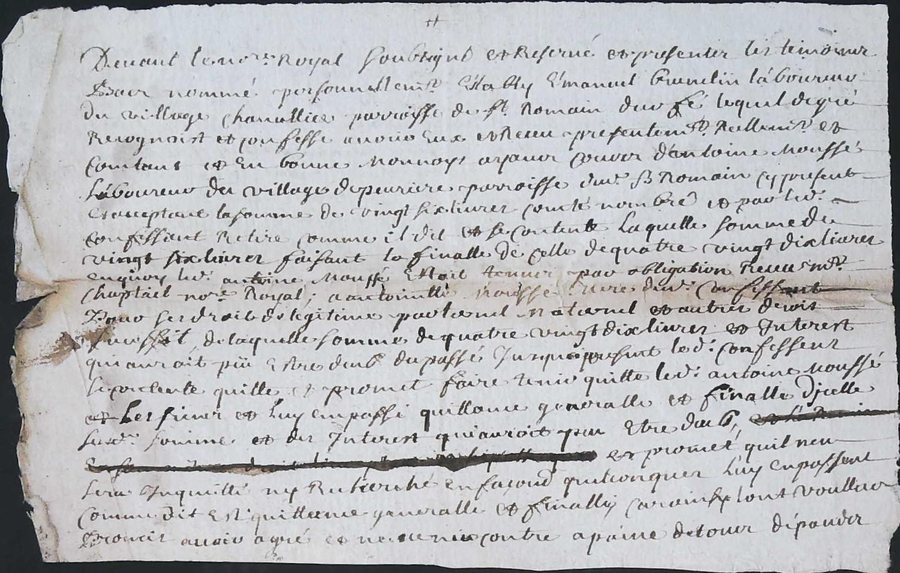 Devant le no.re Royal Soubsigné et Reservé et presenter les temoins
bas nommé personnellem.t Estably Emanuel laboureur
du village Chavallier parroisse de S.t Romain lequel de gré
Recognoist et confesse avoir Eux et Receu presentem.t Rellem.t et
Contant et En bonne Monnoye ayant Cours d'antoine Moussé
laboureur du village de perriere parroisse dud. S.t Romain cy present
Et acceptant la somme de vingt six livres conté nombré et par led.
confessant Retiré comme il dit et se contente laquelle somme de
vingt six livres faisant la finalle de celle de quatre vingt dix livres
enquoy led. antoine Moussé Estoit tenu par obligation Receu m.e
Chaptail no.re Royal, a antoinette Mousse mere dud. Confessant
pour ses droit de legitime paternel Maternel et autres droit
de laquelle somme de quatre vingt dix livres et Interest
qui auroit pu Estre deub du passé Jusque a present led. confessent
se contente quitte et promet faire tenir quitte led. antoine Moussé
et Les siens et Luy en passe quittance generalle et finalle d'jcelle
susd. somme et des Interest qui auroit peu Etre deub,
et promet quil nen
sera Inquietté ny Recherché en façon quelconque Luy en passent
Comme dit est quittance generalle et finalle car ainsy l'ont voullu
promis avoir agré et ne venir contre a paine de tous depandz